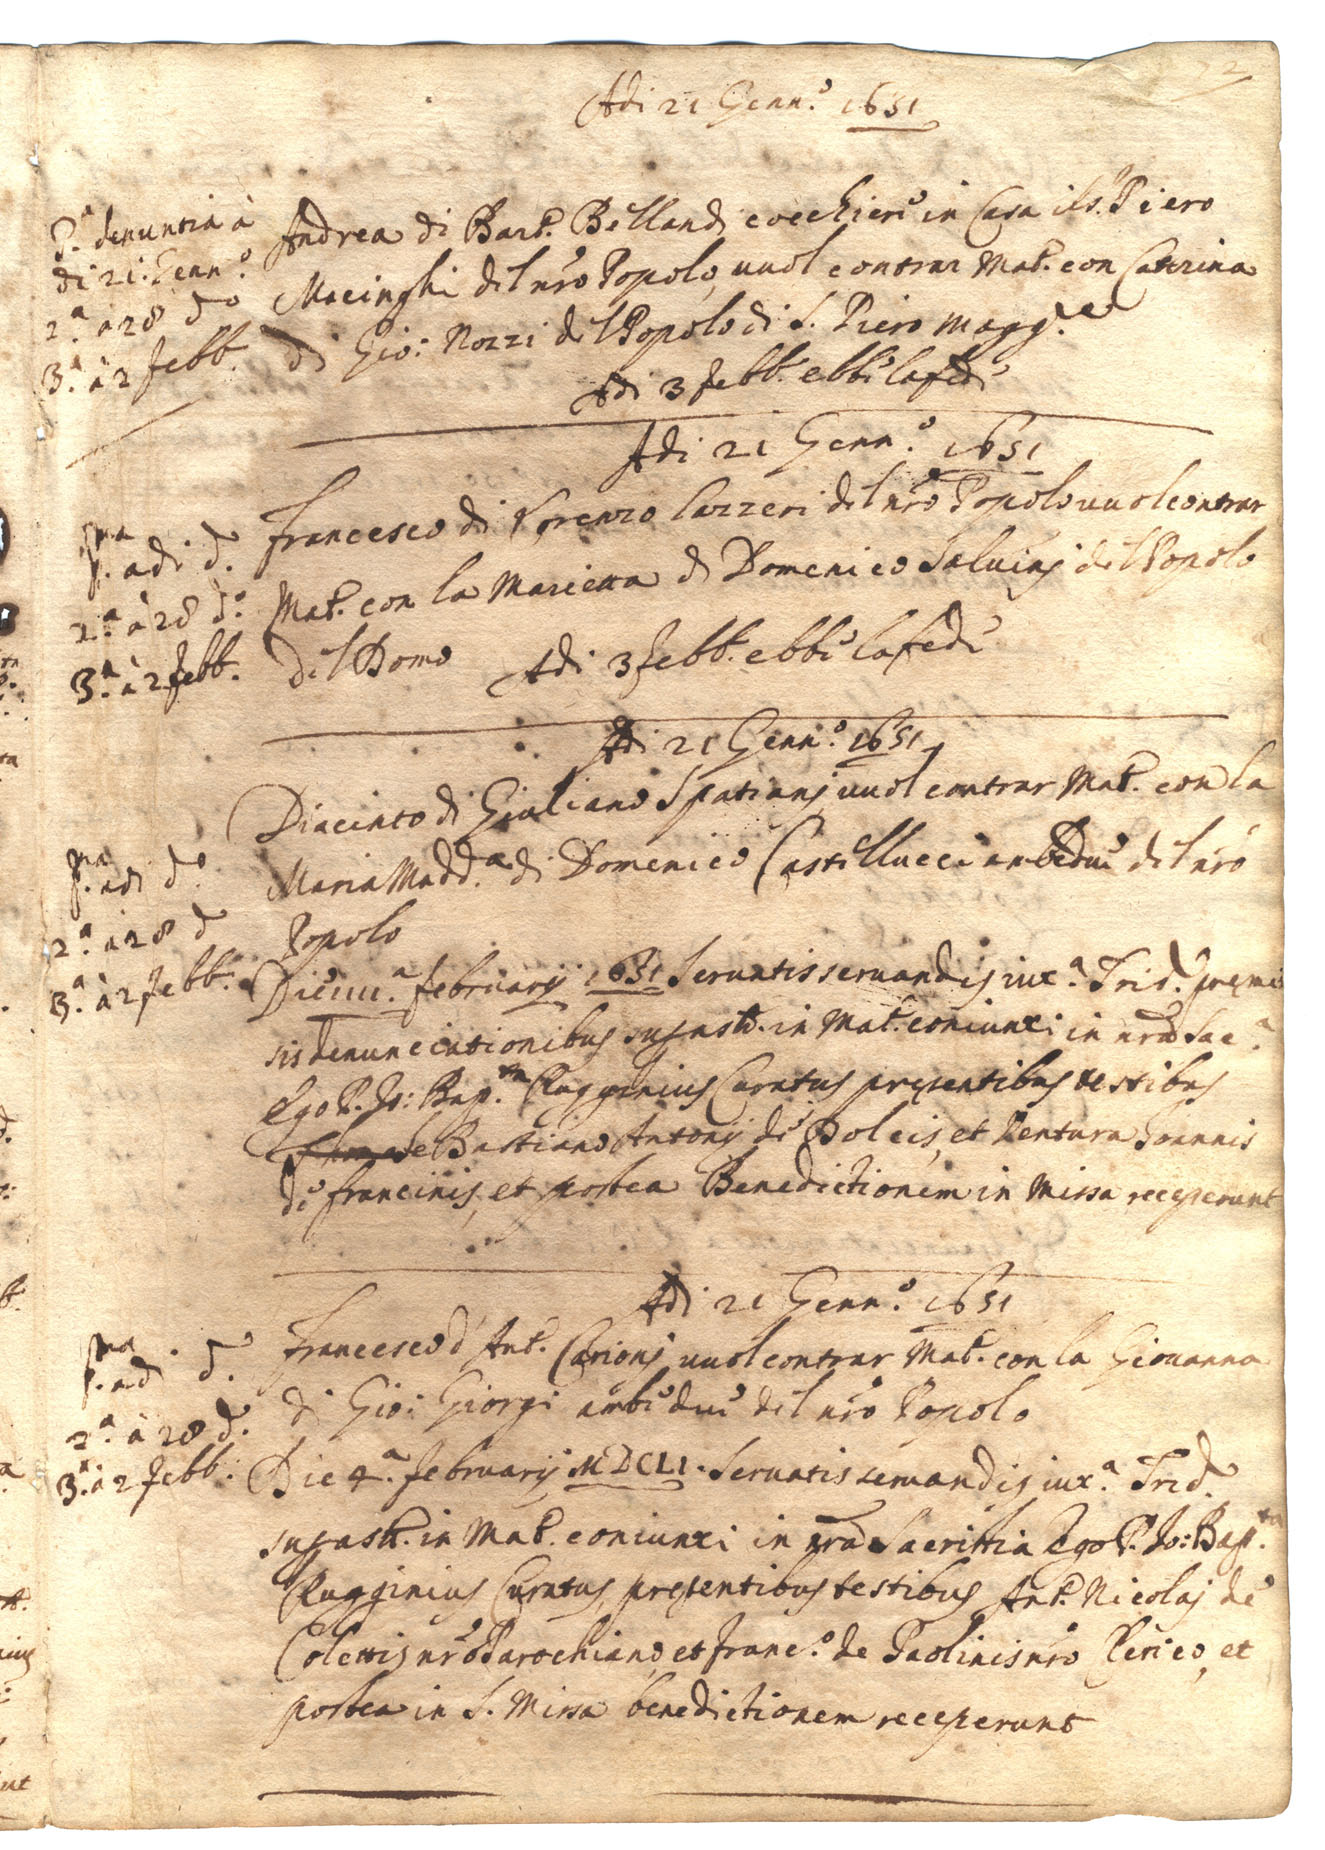 72
Adi 21 Genn.o 1651
P.a denuntia à
di 21. Genn.o
2.a à 28 do
3.a à 2 febb.
Andrea di Bart. Bellandi cocchieri in Casa il S. Piero
Macinghi del nro Popolo, vuol contrar Mat. con Caterina
di Gio: Nozzi del Popolo di S. Piero Magg.e
Adi 3 febb. ebbe la fede
Adi 21 Genn.o 1651
p.ma adi d.
2.a à 28 d.o
3.a à 2 febb.
Francesco di Lorenzo Lazzeri del nro Popolo vuol contrar
Mat. con la Marietta di Domenico Salvinj del Popolo
del Domo Adi 3 febb. ebbe la fede
Adi 21 Genn.o 1651
p.ma adi do.
2.a à 28 d
3.a à 2 febb.
Diacinto di Giuliano Spatianj vuol contrar Mat. con la
Maria Madd.a di Domenico Castellucci ambedue del nro
Popolo
Die iiii.a februarij 1651 Servatis servandis iux.a Trid. premis
sis denunciationibus supast. in Mat. coniunxi in nra Sac.a
Ego P. Jo: Bap.ta Rugginius Curatus presentibus testibus
Bastiano Antonij de Dolcis, et Ventura Joannis
de francinis, et postea Benedictionem in Missa receperunt
Adi 21 Genn.o 1651
p.ma adi d.
2.a à 28 d.
3.a à 2 febb.
Francesco d'Ant. Carionj vuol contrar Mat. con la Giovanna
di Gio: Giorgi ambidui del nro Popolo
Die 4.a februarij MDCLI. Servatis servandis iux.a Trid.
supast. in Mat. coniunxi in nra Sacristia Ego P. Jo: Bap.ta
Rugginius Curatus, presentibus testibus Ant. Nicolaj de
Colettis nro Parochiano, et Franc.o de Paolinis nro Clerico, et
postea in S. Missa benedictionem receperunt